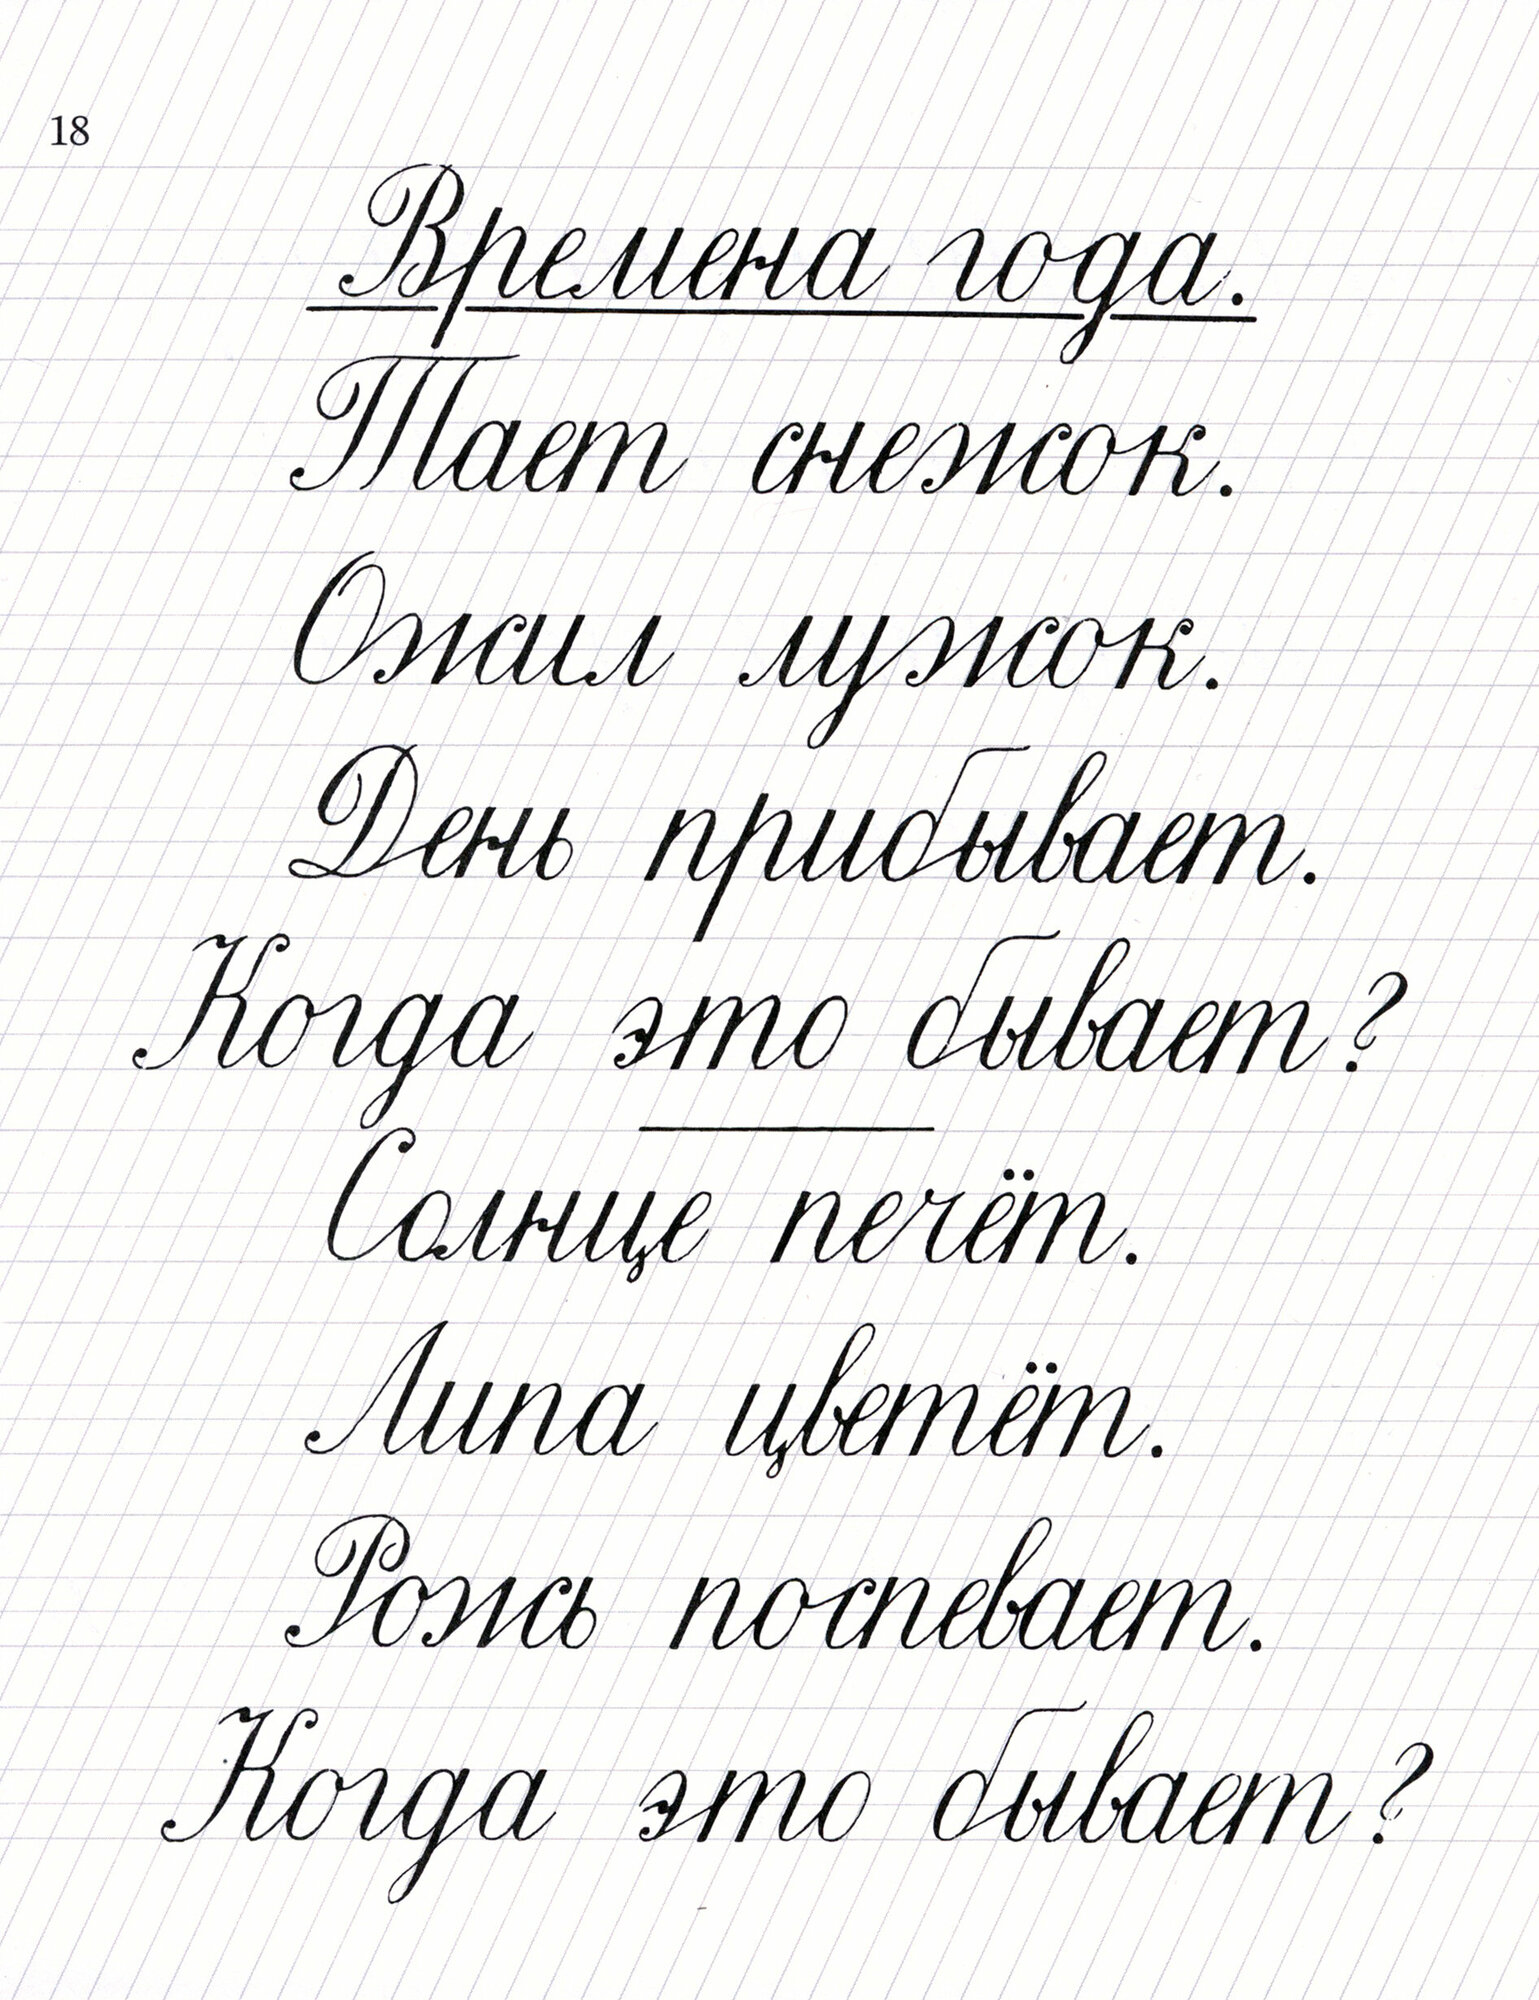 18
Времена года.
Тает снежок.
Ожил лужок.
День прибывает.
Когда это бывает?
Солнце печёт.
Липа цветёт.
Рожь поспевает.
Когда это бывает?